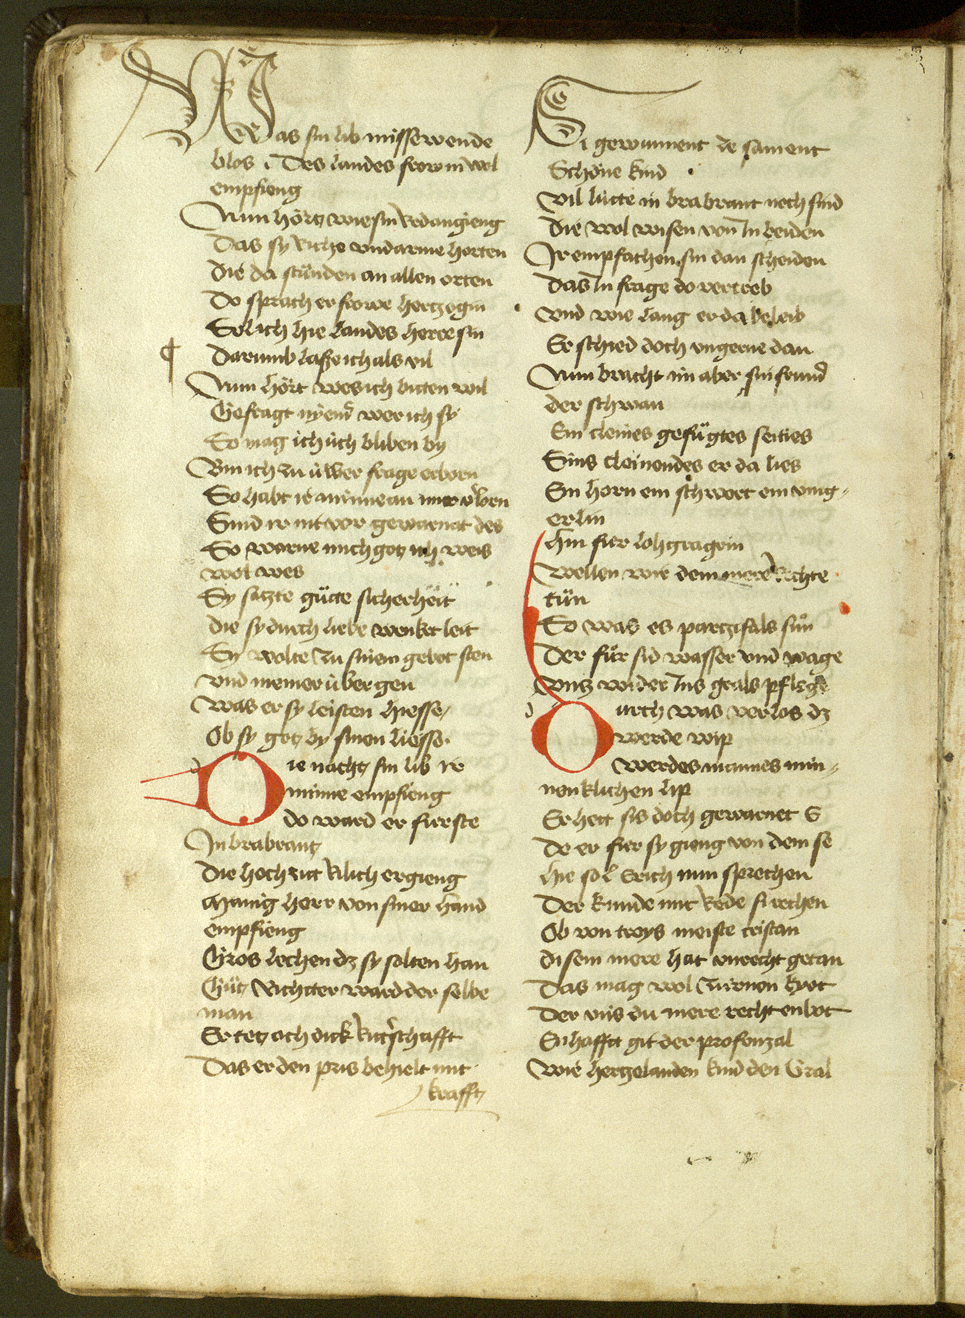 Was sin lib missewende
blos · Des landes frow in wol
empfieng
Nun hörtz wie sin red angieng
Das sy riche vnd arme horten
Die da stünden an allen orten
Do sprach er frowe hertzogin
Sol ich hie landes herre sin
Darumb lasße ich als vil
Nun hört wes ich bitten wil
Gefragt nyemer wer ich sy
So mag ich üch bliben by
Bin ich zu üwer frage erborn
So habt ir minne an mir verlorn
Sind ir nit vor gewarnat des
So warne mich got ich weis
wol wes
Sy satzte gütte sicherheit
die sy durch liebe wenket leit
Sy wolte zu sinem gebot sten
vnd niemer über gen
Was er sy leisten hiesse
Ob sy got by sinen liesse
Die nacht sin lib ir
minne empfieng
do ward er fürste
In brabrant
Die hochzitt rilich ergieng
Manig herr von siner hand
empfieng
Gros lechen dz sy solten han
Gütt richtter ward der selbe
man
Er tet och dick ritterschafft
Das er den pris behielt mit
krafft
Si gewunnent de sament
Schöne kind ·
Vil lütte in brabrant noch sind
Die wol wisen von In beiden
Ir empfachen sin dan scheiden
Das In frage do vertreb
Vnd wie lang er da beleib
Er schied doch vngerne dan
Nun bracht im aber sin frund
der schwan
Ein cleines gefügtes seities
Sins cleinendes er da lies
Ein horn ein schwert ein ving-
erlin
Hin fier lohgragrin
Wellen wir dem mere rechte
tün
So was es partzifals sun
Der für sid wasser vnd wage
vntz wider Ins grals pflege
Durch was verlos dz
werde wip
Werdes mannes min-
nenklichen lip
Er hett sis doch gewarnet E
Do er fier sy gieng von dem se
Hie sol Erich nun sprechen
Der kunde mit rede sich rechen
Ob von troys meiste cristan
disem mere hat vnrecht getan
Das mag wol zurnen kyot
Der vns die mere rechten bot
Enhafft git der profonzal
Wie hertzelanden kind den Gral